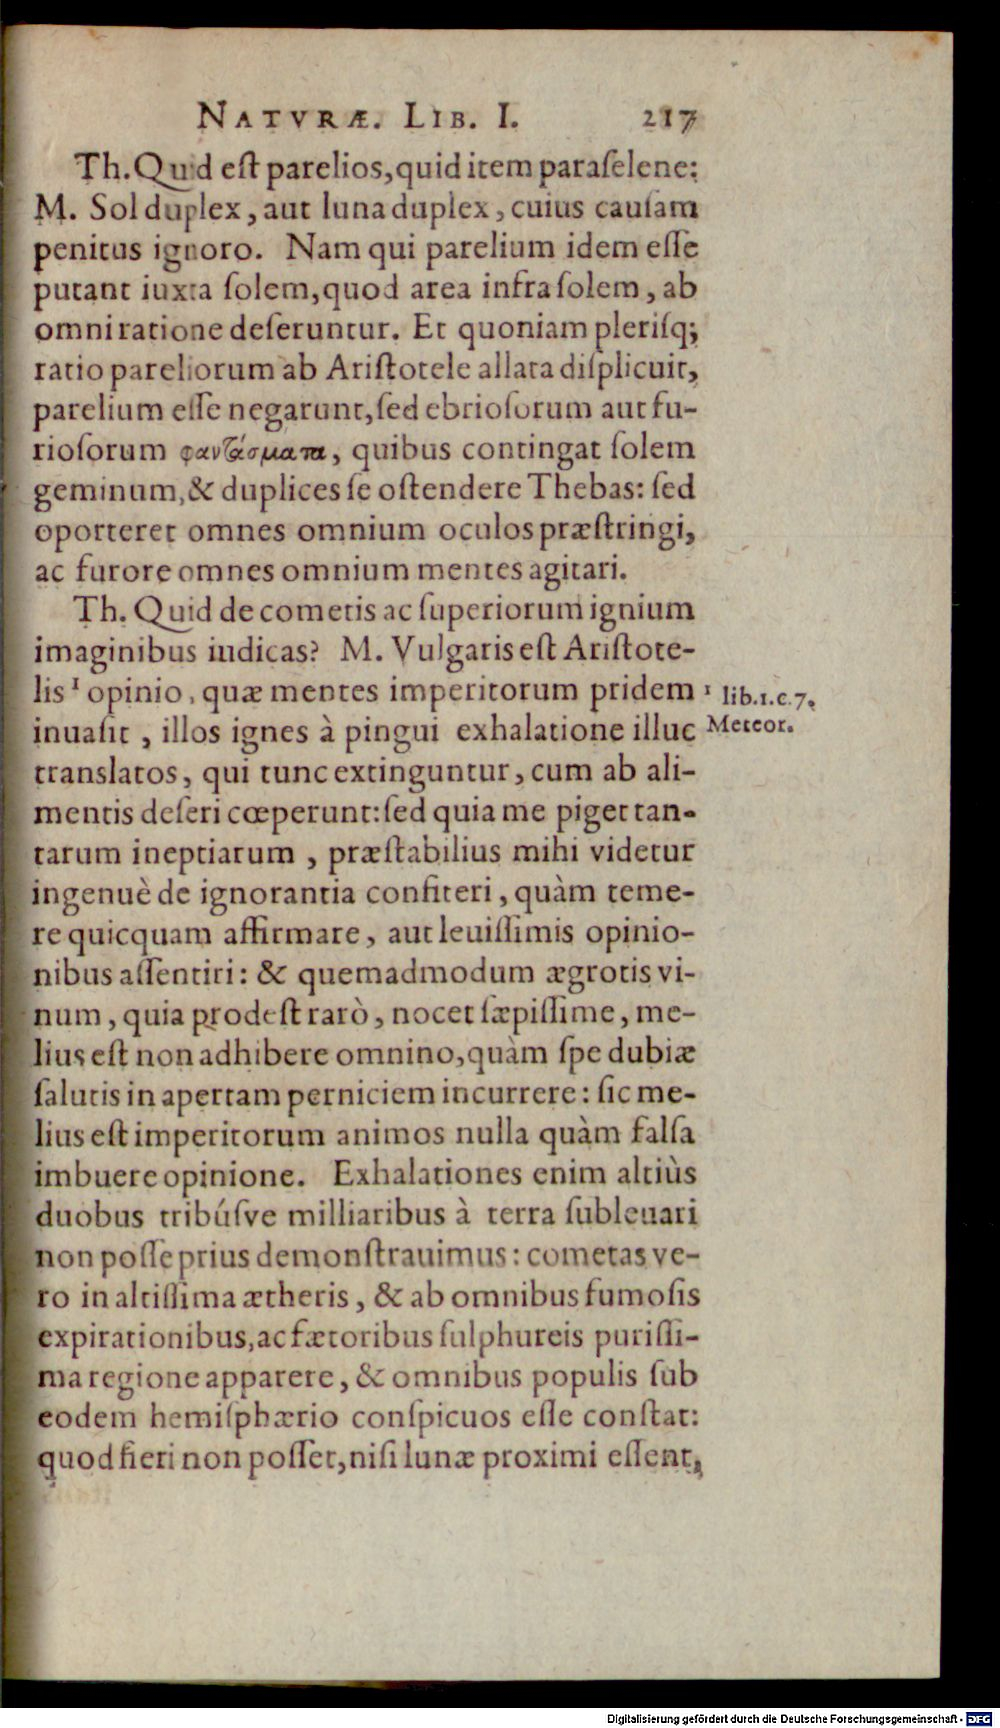 NATVRÆ. LIB. I. 217
Th. Quid eſt parelios, quid item paraſelene:
M. Sol duplex, aut luna duplex, cuius cauſam
penitus ignoro. Nam qui parelium idem eſſe
putant iuxta ſolem, quod area infra ſolem, ab
omni ratione deſeruntur. Et quoniam pleriſq;
ratio pareliorum ab Ariſtotele allata diſplicuit,
parelium eſſe negarunt, ſed ebrioſorum aut fu-
rioſorum φαντάσματα, quibus contingat ſolem
geminum, & duplices ſe oſtendere Thebas: ſed
oporteret omnes omnium oculos præſtringi,
ac furore omnes omnium mentes agitari.
Th. Quid de cometis ac ſuperiorum ignium
imaginibus iudicas? M. Vulgaris eſt Ariſtote-
lis ¹ opinio, quæ mentes imperitorum pridem
¹ lib.1.c.7.
Meteor.
inuaſit, illos ignes à pingui exhalatione illuc
translatos, qui tunc extinguntur, cum ab ali-
mentis deſeri cœperunt: ſed quia me piget tan-
tarum ineptiarum, præſtabilius mihi videtur
ingenuè de ignorantia confiteri, quàm teme-
re quicquam affirmare, aut leuiſſimis opinio-
nibus aſſentiri: & quemadmodum ægrotis vi-
num, quia prodeſt rarò, nocet ſæpiſſime, me-
lius eſt non adhibere omnino, quàm ſpe dubiæ
ſalutis in apertam perniciem incurrere: ſic me-
lius eſt imperitorum animos nulla quàm falſa
imbuere opinione. Exhalationes enim altiùs
duobus tribúſve milliaribus à terra ſubleuari
non poſſe prius demonſtrauimus: cometas ve-
ro in altiſſima ætheris, & ab omnibus fumoſis
expirationibus, ac fætoribus ſulphureis puriſſi-
ma regione apparere, & omnibus populis ſub
eodem hemiſphærio conſpicuos eſſe conſtat:
quod fieri non poſſet, niſi lunæ proximi eſſent,
Digitalisierung gefördert durch die Deutsche Forschungsgemeinschaft - DFG